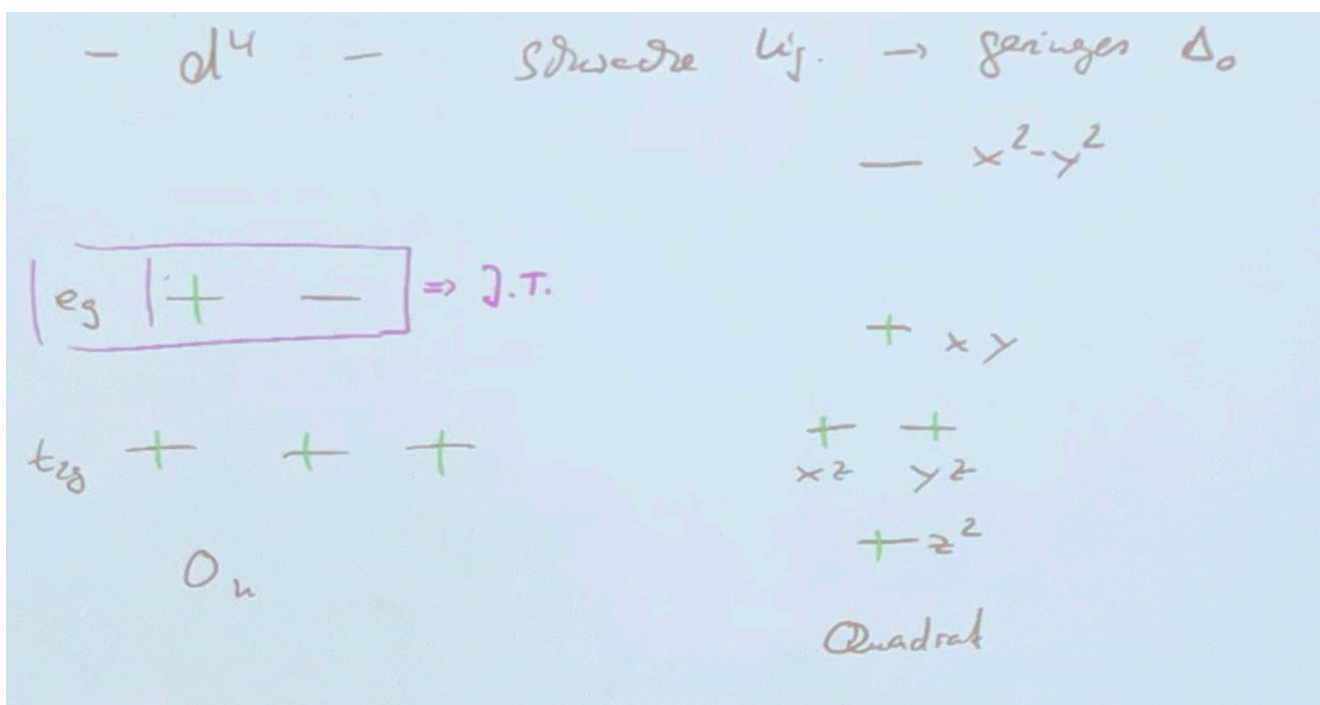 - d⁴ - Schwache Lig. → geringes Δo
x²-y²
eg ⇒ J.T.
xy
t2g
xz yz
z²
Oh
Quadrat